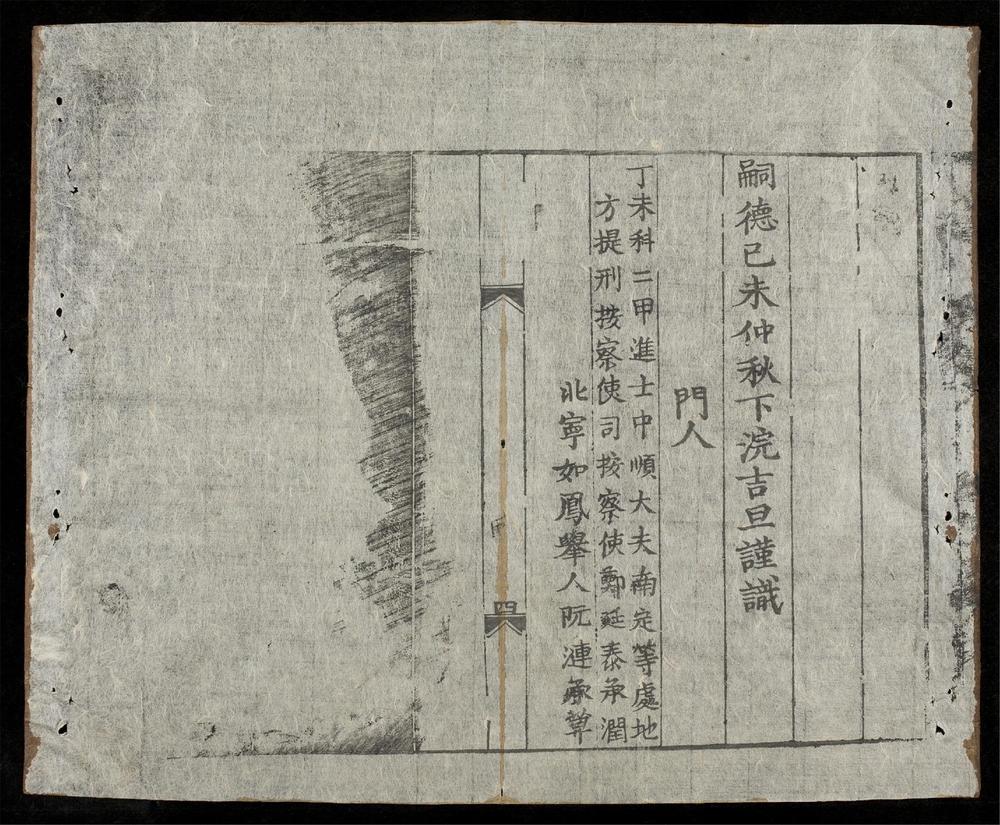 嗣德己未仲秋下浣吉旦謹識
門人
丁未科二甲進士中順大夫南定等處地
方提刑按察使司按察使鄭廷泰承潤
北寧如鳳舉人阮漣承算
四